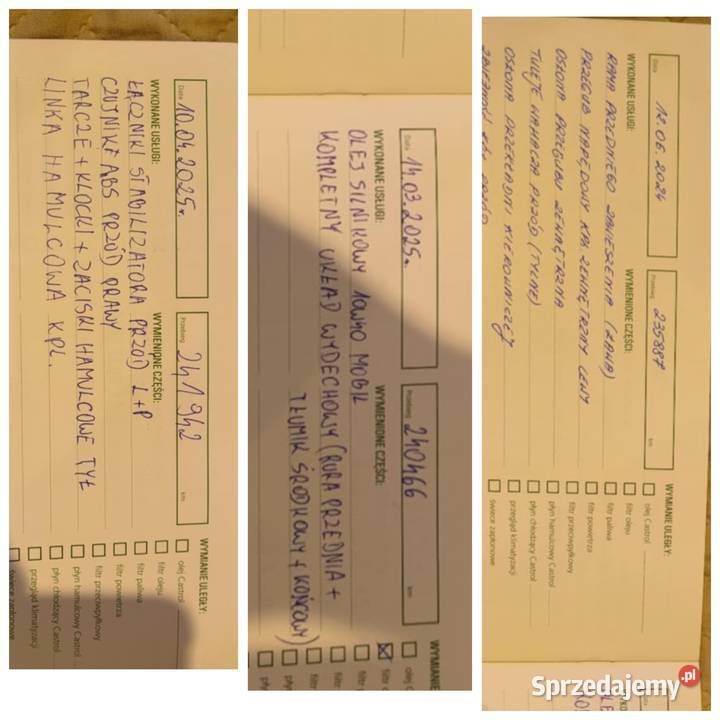 Data 10.04.2025r.
Przebieg 241942 km
WYKONANE USŁUGI:
WYMIENIONE CZĘŚCI:
ŁĄCZNIKI STABILIZATORA PRZÓD L+P
CZUJNIK ABS PRZÓD PRAWY
TARCZE + KLOCKI + ZACISKI HAMULCOWE TYŁ
LINKA HAMULCOWA KPL.
WYMIANIE ULEGŁY:
olej Castrol
filtr oleju
filtr paliwa
filtr powietrza
filtr przeciwpyłkowy
płyn hamulcowy Castrol
płyn chłodzący Castrol
przegląd klimatyzacji
świece zapłonowe
Data 14.03.2025r.
Przebieg 240466 km
WYKONANE USŁUGI:
WYMIENIONE CZĘŚCI:
OLEJ SILNIKOWY 10W40 MOBIL
KOMPLETNY UKŁAD WYDECHOWY (RURA PRZEDNIA +
TŁUMIK ŚRODKOWY + KOŃCOWY)
WYMIANIE
olej C
filtr o
filtr
filtr
filtr
płyn
płyn
Data 12.06.2024
Przebieg 235887 km
WYKONANE USŁUGI:
WYMIENIONE CZĘŚCI:
RAMA PRZEDNIEGO ZAWIESZENIA (ŁAWA)
PRZEGUB NAPĘDOWY KPL ZEWNĘTRZNY LEWY
OSŁONA PRZEGUBU ZEWNĘTRZNA
TULEJE WAHACZA PRZÓD (TYLNE)
OSŁONA PRZEKŁADNI KIEROWNICZEJ
WYMIANIE ULEGŁY:
olej Castrol
filtr oleju
filtr paliwa
filtr powietrza
filtr przeciwpyłkowy
płyn hamulcowy Castrol
płyn chłodzący Castrol
przegląd klimatyzacji
świece zapłonowe
Sprzedajemy.pl